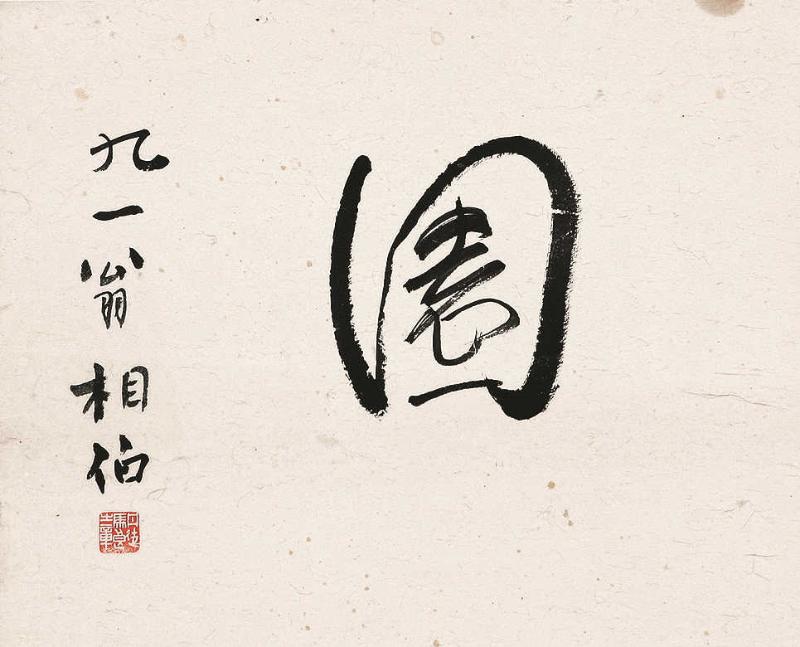 園
九一翁相伯